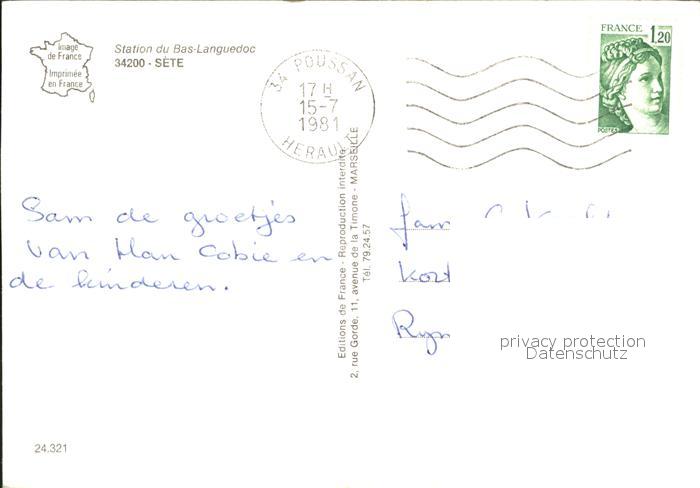 Image
de France
Imprimée
en France
Station du Bas-Languedoc
34200 - SÈTE
34 POUSSAN
17 H
15-7
1981
HERAULT
FRANCE
1,20
POSTES
Sam de groetjes
van Han Cobie en
de kinderen.
Editions de France - Reproduction interdite
2, rue Gorde, 11, avenue de la Timone - MARSEILLE
Tél. 79.24.57
fam
privacy protection
Datenschutz
24.321